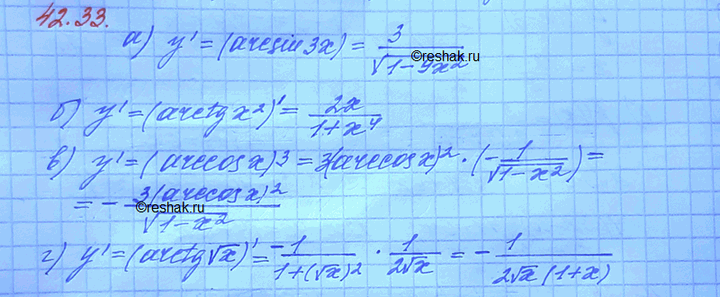 42.33.
а) y' = (arcsin 3x) = 3/√(1-9x²)
©reshak.ru
б) y' = (arctg x²)' = 2x/(1+x⁴)
в) y' = (arccos x)³ = 3(arccos x)² · (-1/√(1-x²)) =
= - 3(arccos x)²/√(1-x²)
©reshak.ru
г) y' = (arctg √x)' = -1/(1+(√x)²) · 1/(2√x) = - 1/(2√x (1+x))